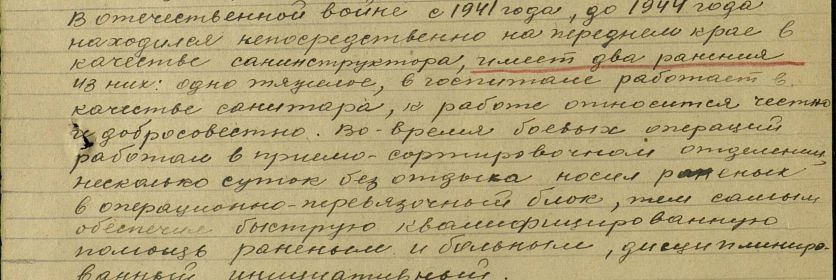 В отечественной войне с 1941 года, до 1944 года
находился непосредственно на переднем крае в
качестве санинструктора, имеет два ранения
из них: одно тяжелое, в госпитале работает в
качестве санитара, к работе относится честно
и добросовестно. Во-время боевых операций
работал в приемо-сортировочном отделении,
несколько суток без отдыха носил раненых
в операционно-перевязочный блок, тем самым
обеспечил быструю квалифицированную
помощь раненым и больным, дисциплиниро-
ванный инициативный.